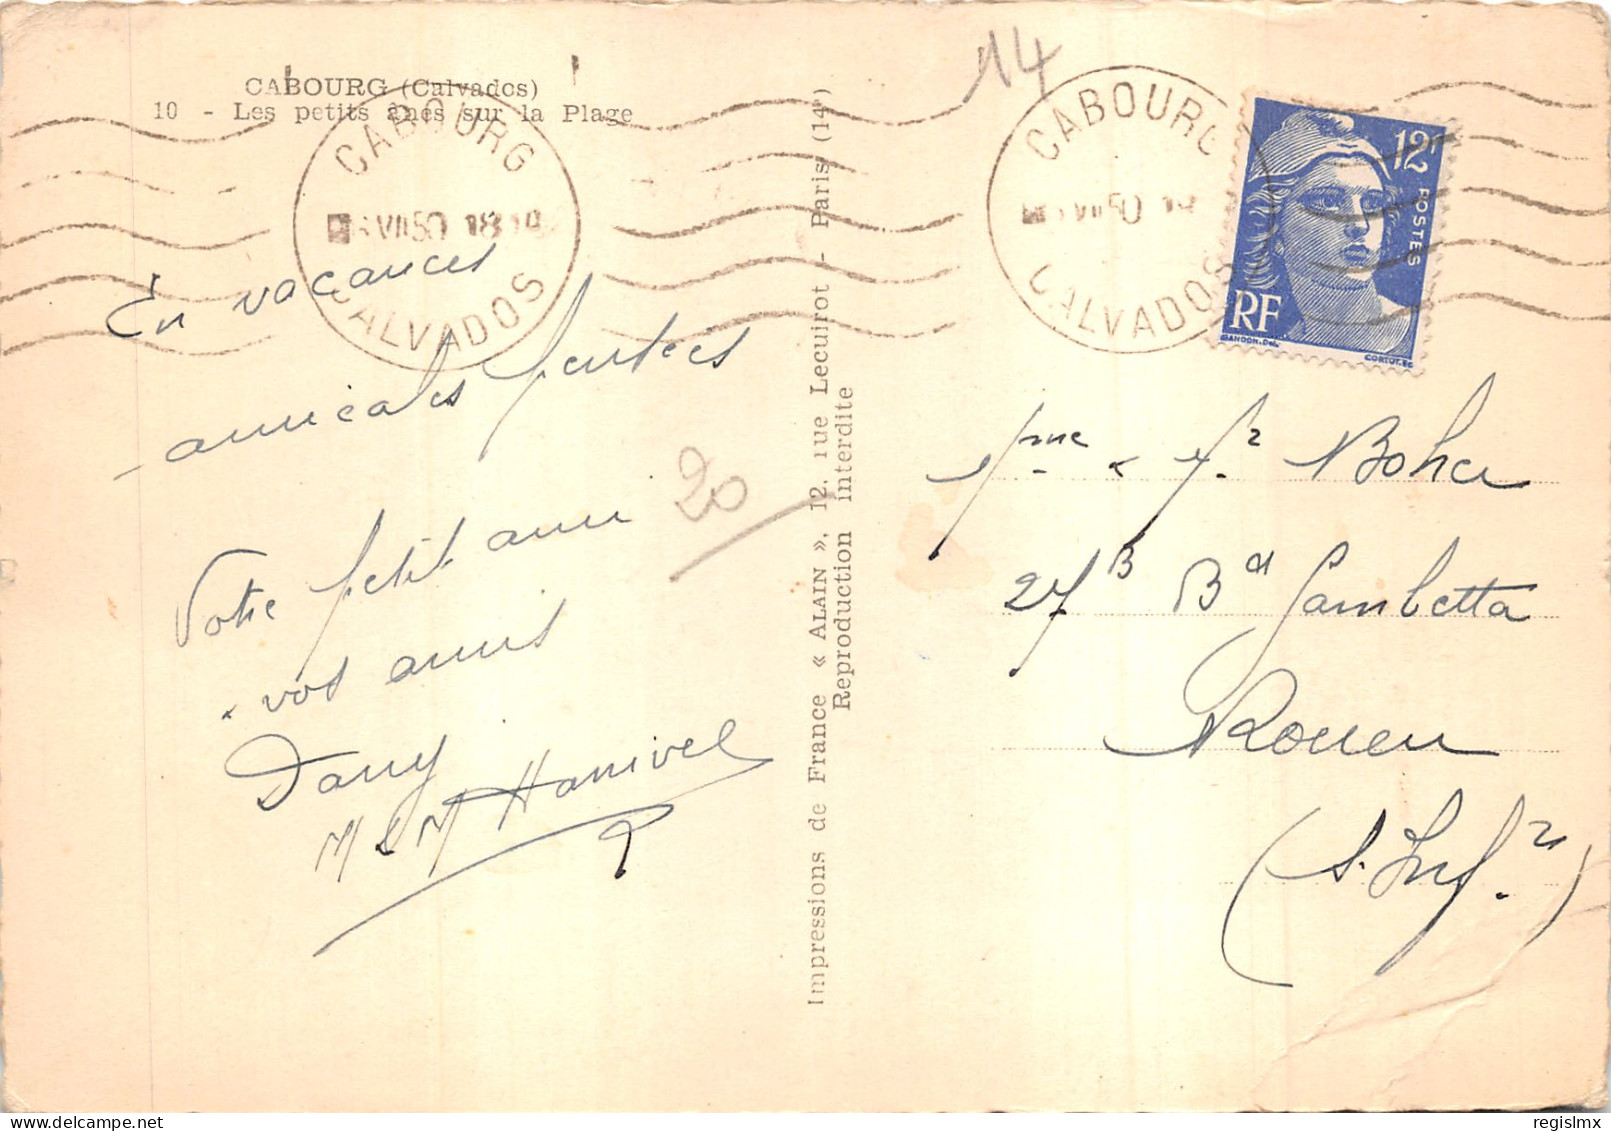 CABOURG (Calvados)
10 - Les petits ânes sur la Plage
CABOURG
VII 50 18
CALVADOS
En vacances
amicales pensées
Votre petit ami
& vos amis
Dany
M & M Hanivel
20
14
Impressions de France « ALAIN », 12, rue Lecuirot - Paris (14e)
Reproduction interdite
CABOURG
VII 50 18
CALVADOS
12F
POSTES
RF
GANDON.Del.
CORTOT.SC
Mme & Mr Boher
27B Bd Gambetta
Rouen
(S. Infre)
regislmx